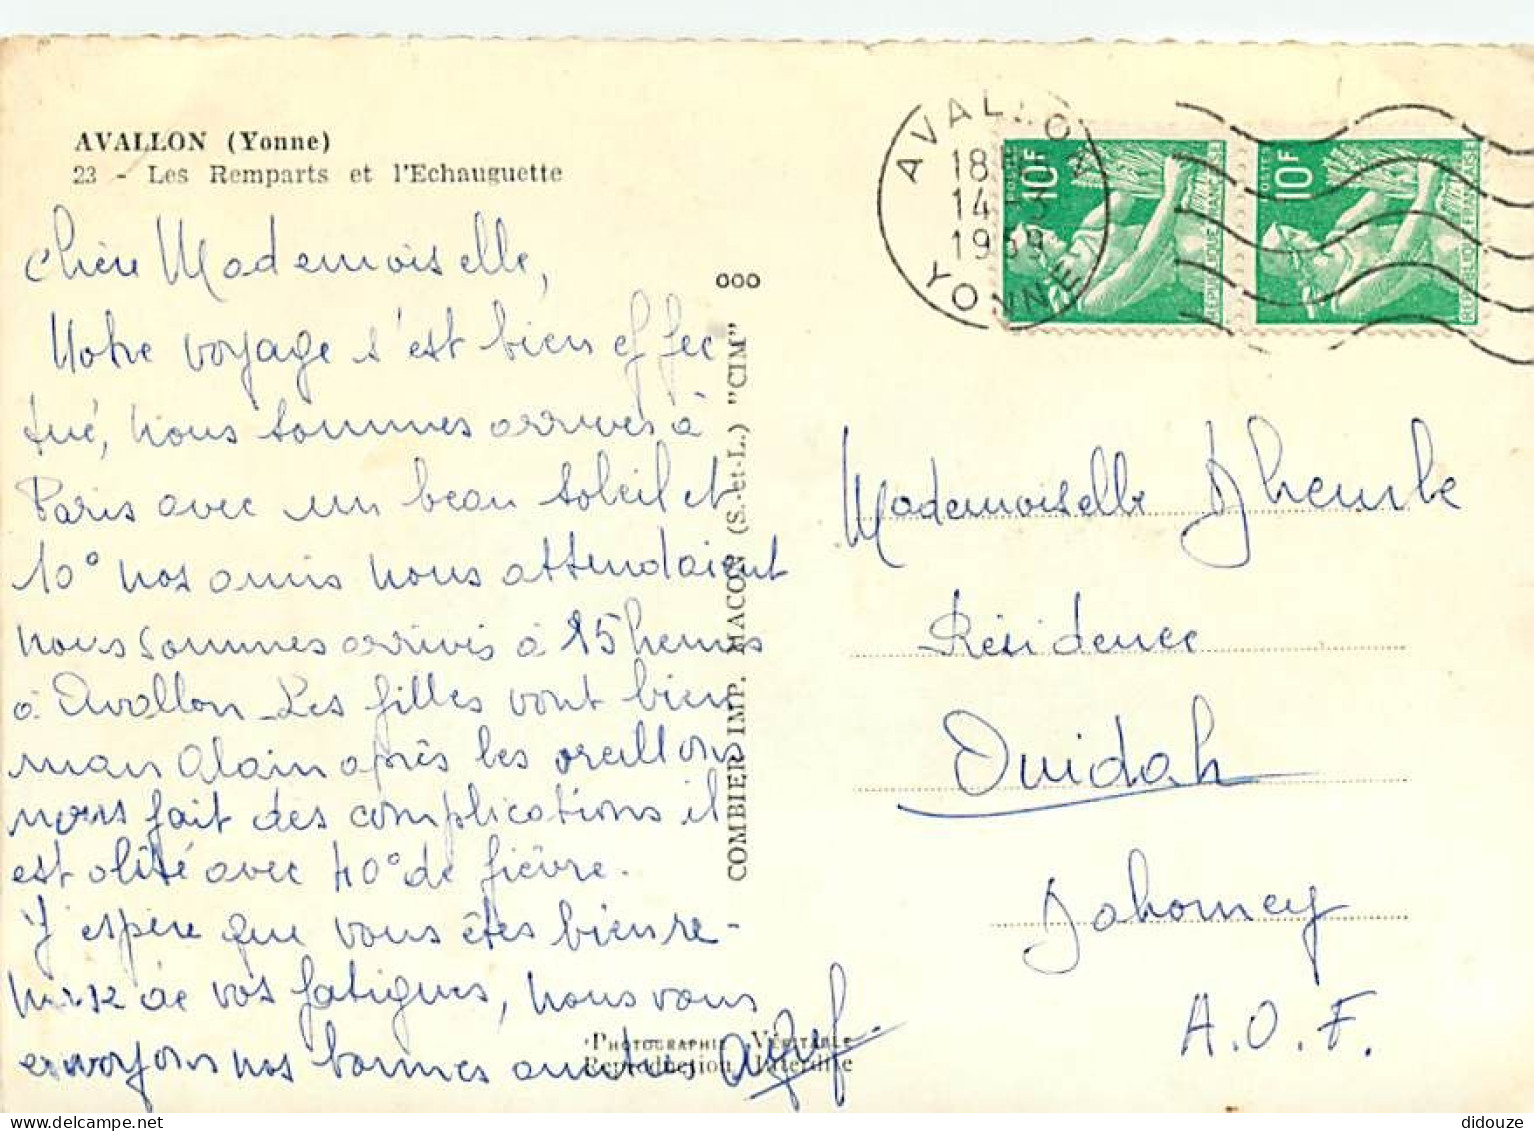 AVALLON (Yonne)
23 - Les Remparts et l'Echauguette
Chère Mademoiselle,
Notre voyage s'est bien effec
tué, nous sommes arrivés à
Paris avec un beau soleil et
10° nos amis nous attendaient
nous sommes arrivés à 15 heures
à Avallon - Les filles vont bien
mais Alain après les oreillons
nous fait des complications il
est alité avec 40° de fièvre.
J'espère que vous êtes bien re-
mise de vos fatigues, nous vous
envoyons nos bonnes amitiés
ooo
COMBIER IMP. MACON (S.-et-L.) "CIM"
PHOTOGRAPHIE VÉRITABLE
Reproduction Interdite
AVALLON
18H
14-3
1959
YONNE
POSTES 10F
REPUBLIQUE FRANÇAISE
POSTES 10F
REPUBLIQUE FRANÇAISE
Mademoiselle
Résidence
Ouidah
Dahomey
A.O.F.
didouze